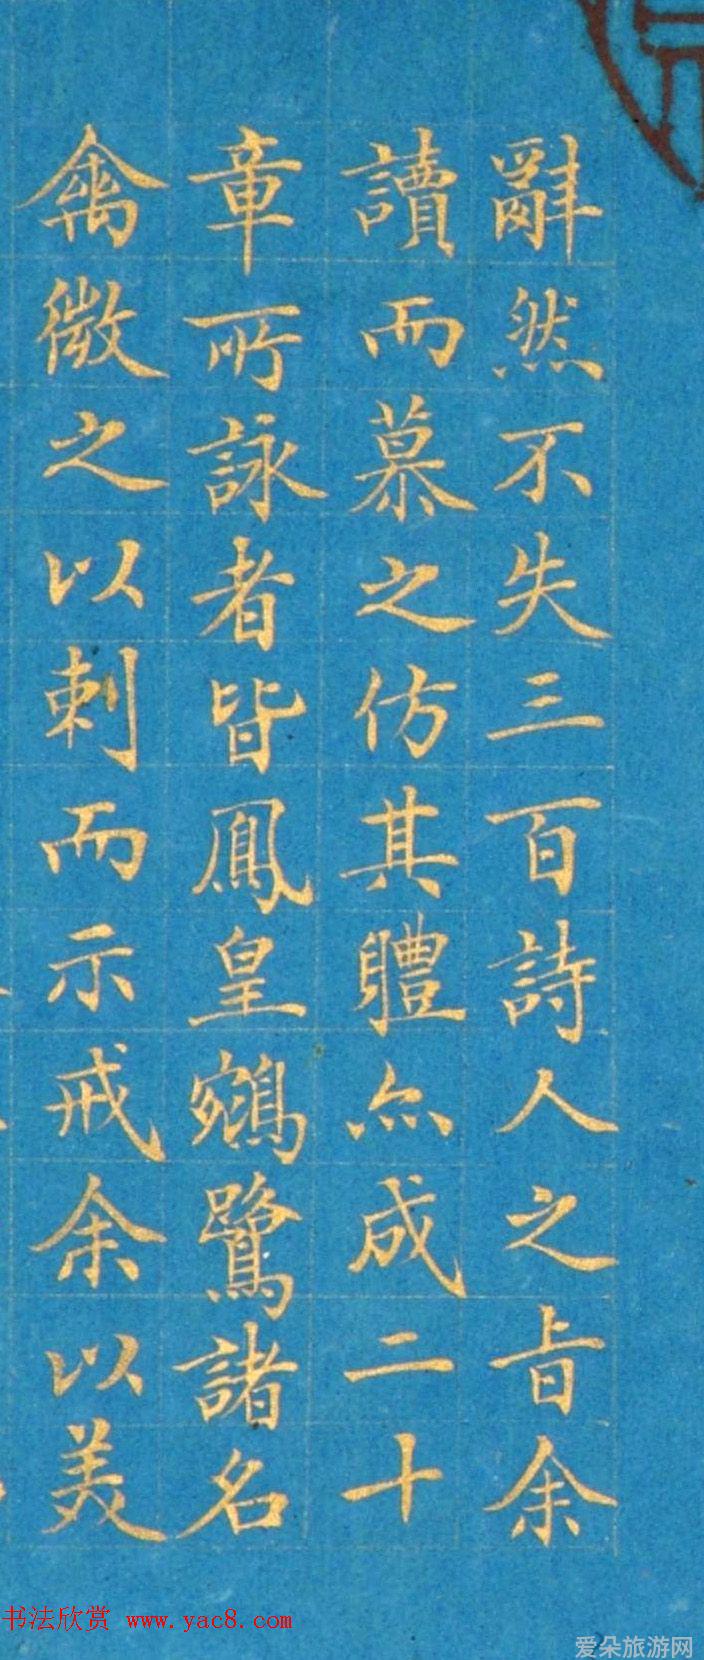 辭然不失三百詩人之旨余
讀而慕之仿其體亦成二十
章所詠者皆鳳皇鵷鷺諸名
禽微之以刺而示戒余以美
书法欣赏 www.yac8.com
爱朵旅游网